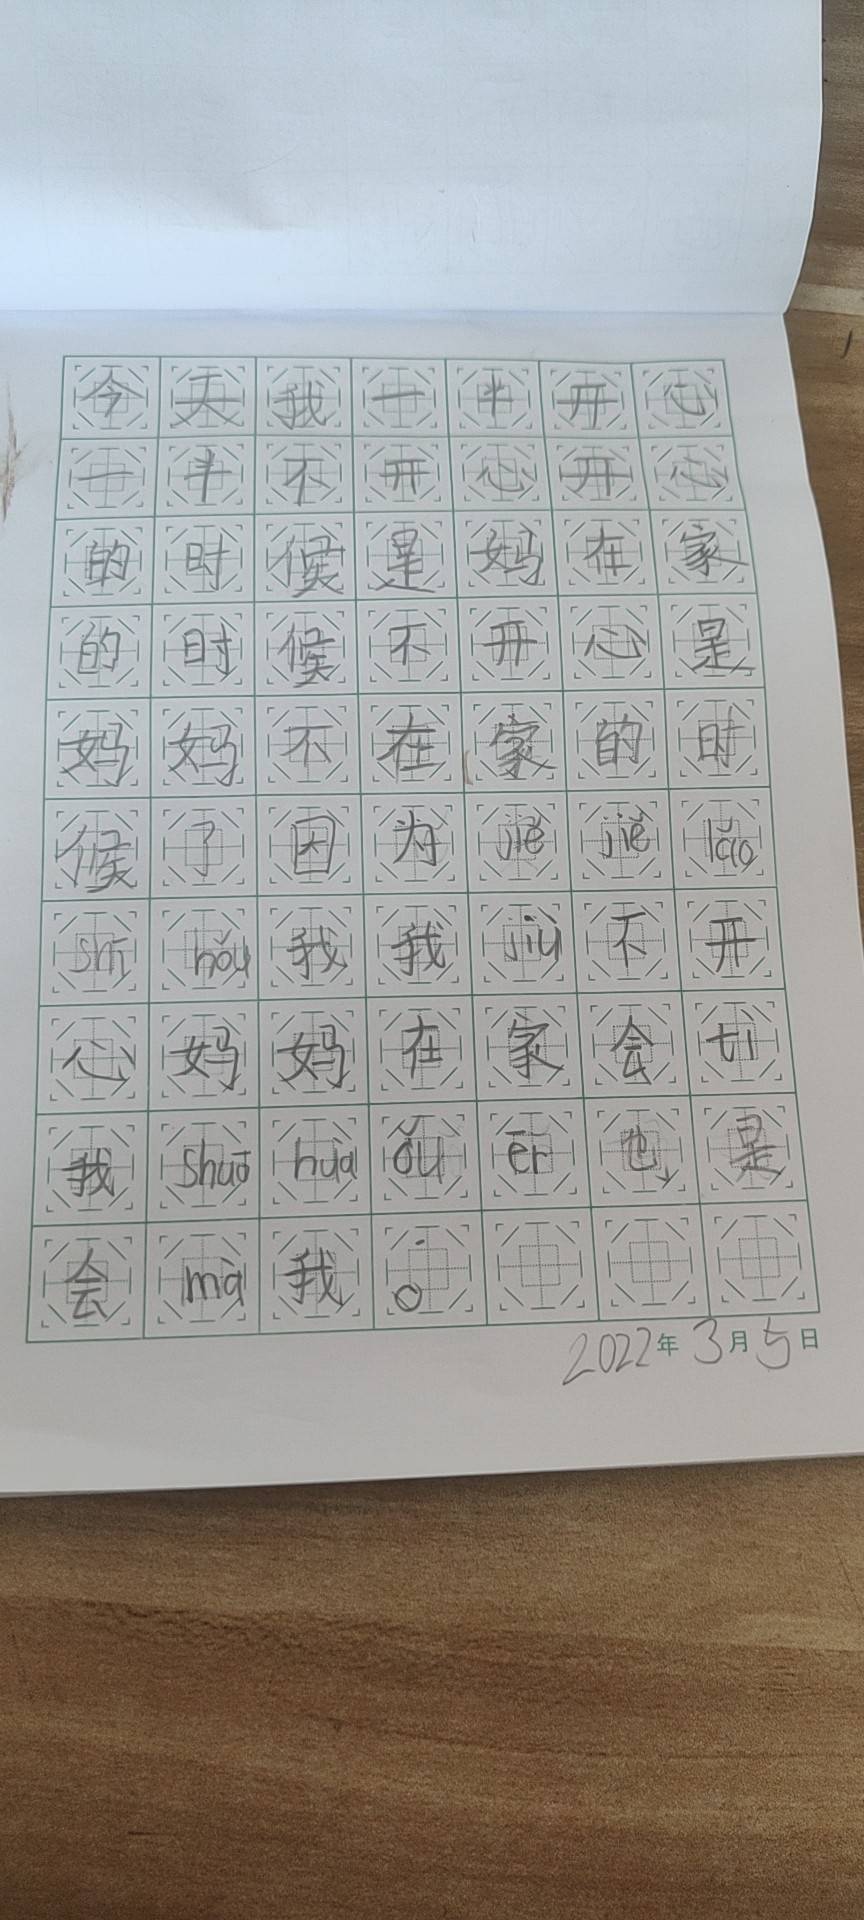 今天我一半开心
一半不开心开心
的时候是妈在家
的时候不开心是
妈妈不在家的时
候了因为jiě jiě lǎo
shī hǒu我我jiù不开
心妈妈在家会tì
我shuō huà ǒu ěr也是
会mà我。
2022年3月5日